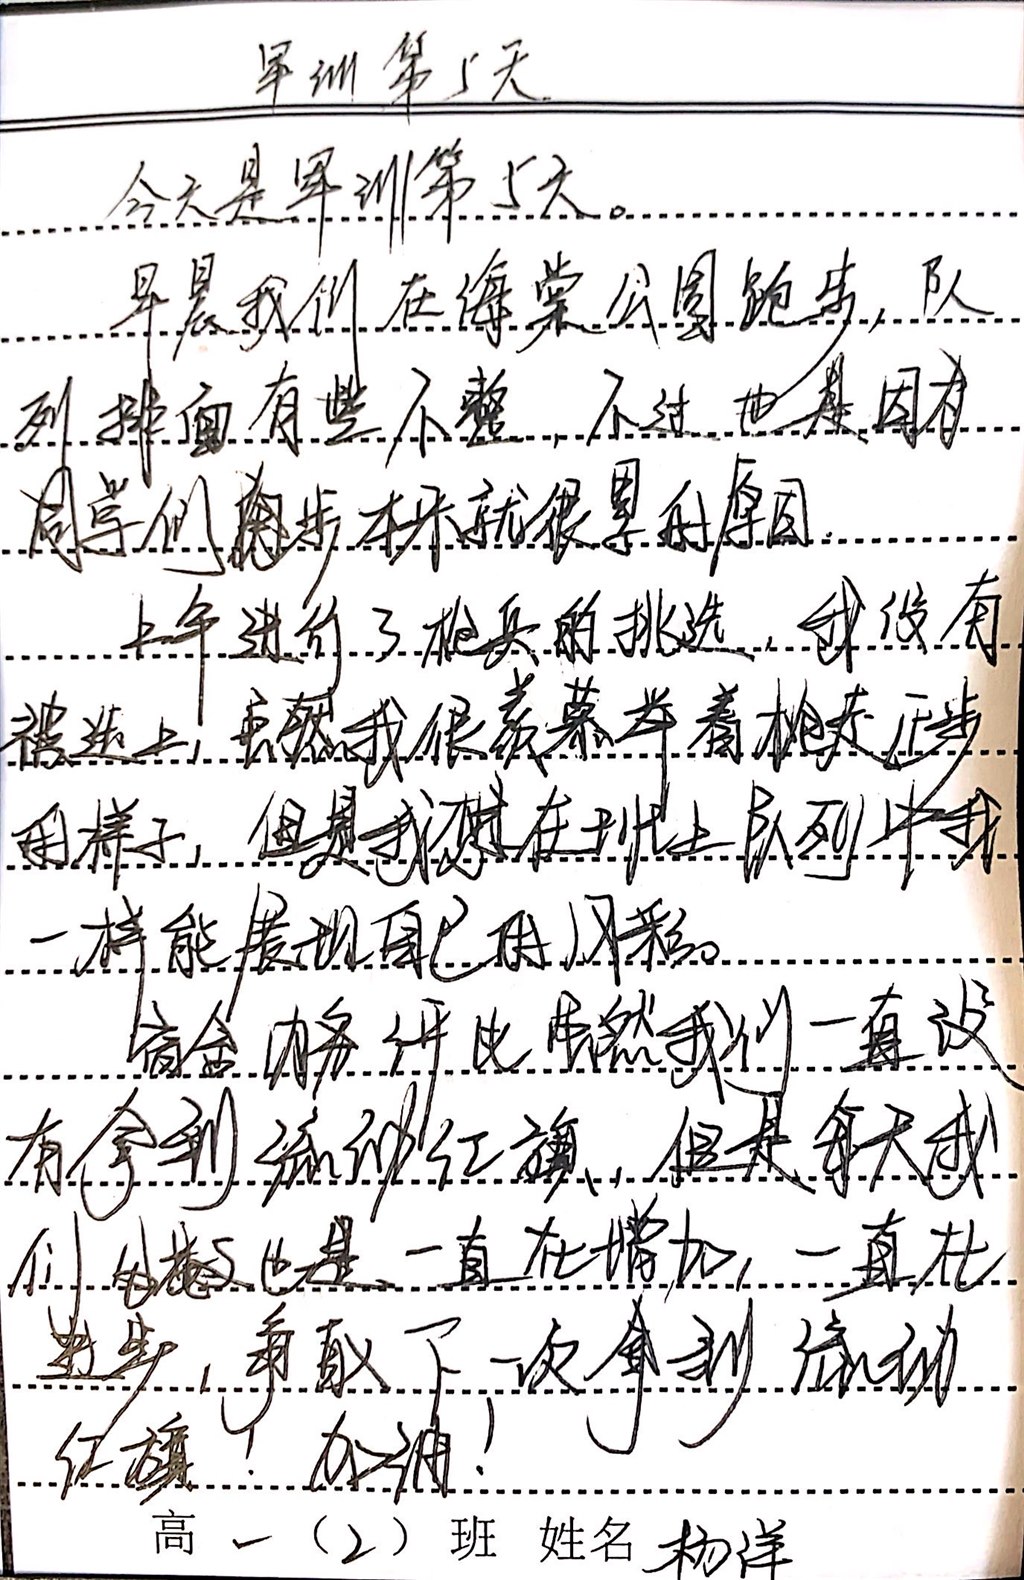 军训第5天
今天是军训第5天。
早晨我们在海棠公园跑步,队
列排面有些不整,不过也是因有
同学们跑步本来就很累的原因.
上午进行了枪兵的挑选,我没有
被选上,虽然我很羡慕举着枪走正步
的样子,但是我在队列中我
一样能展现自己的风彩。
宿舍内务评比虽然我们一直没
有拿到流动红旗,但是每天我
们的也是一直在增加,一直在
进步,争取下一次拿到流动
红旗!加油!
高一(2)班 姓名 杨洋